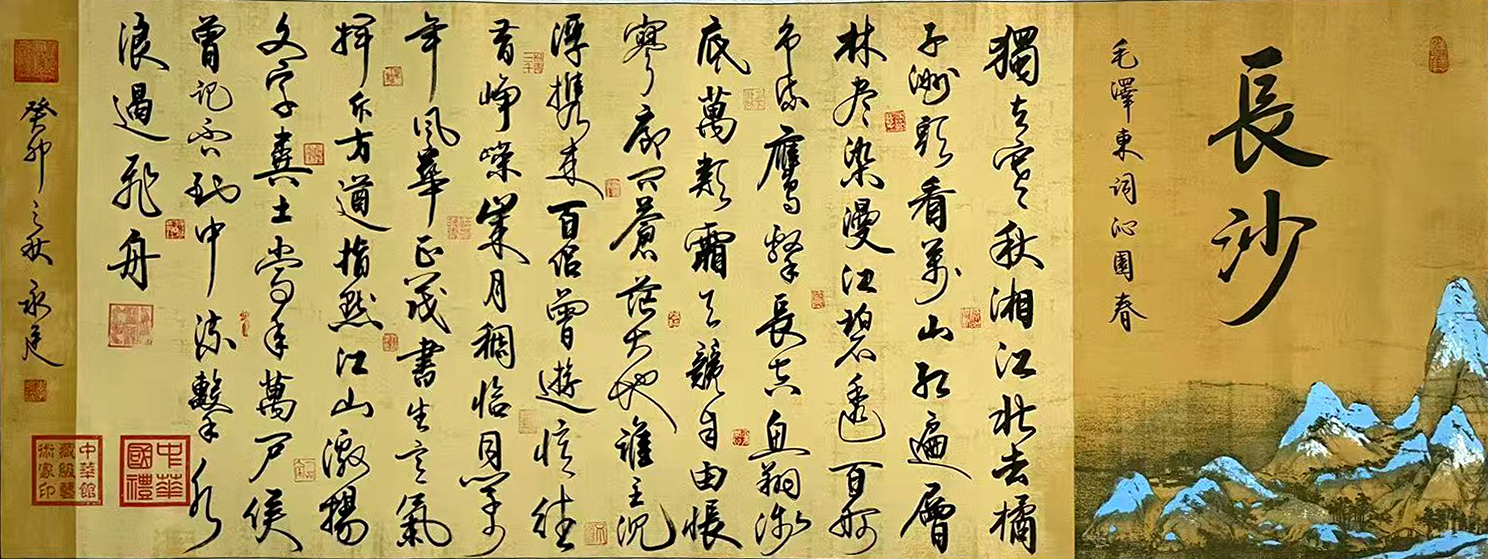 長沙
毛澤東詞沁園春
獨立寒秋湘江北去橘
子洲頭看萬山紅遍層
林尽染漫江碧透百舸
爭流鷹擊長空魚翔淺
底萬類霜天競自由悵
寥廓問蒼茫大地誰主沉
浮攜來百侶曾遊憶往
昔崢嶸歲月稠恰同學少
年風華正茂書生意氣
揮斥方遒指點江山激揚
文字糞土當年萬戶侯
曾記否到中流擊水
浪遏飛舟
中華國禮
癸卯之秋永
中華館藏級藝術家印